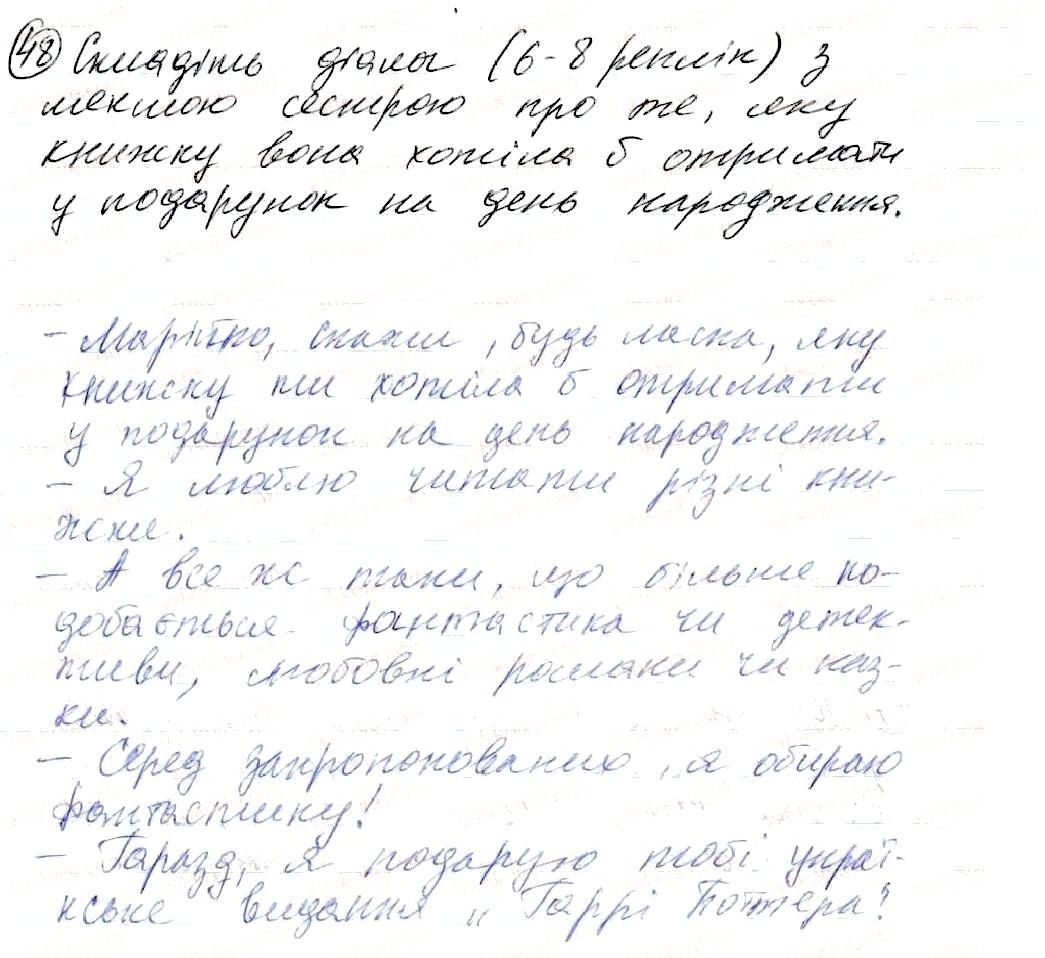 48 Складіть діалог (6-8 реплік) з
меншою сестрою про те, яку
книжку вона хотіла б отримати
у подарунок на день народження.
- Марійко, скажи, будь ласка, яку
книжку ти хотіла б отримати
у подарунок на день народження.
- Я люблю читати різні кни-
жки.
- А все ж таки, що більше по-
добається фантастика чи детек-
тиви, любовні романи чи каз-
ки.
- Серед запропонованих, я обираю
фантастику!
- Гаразд, я подарую тобі украї-
нське видання „Гаррі Поттера"